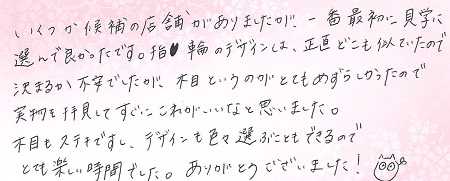 いくつか候補の店舗がありましたが、一番最初に見学に
選んで良かったです。指輪のデザインは、正直どこも似ていたので
決まるか不安でしたが、木目というのがとてもめずらしかったので
実物を拝見してすぐにこれがいいなと思いました。
木目もステキですし、デザインも色々選ぶこともできるので
とても楽しい時間でした。ありがとうございました！